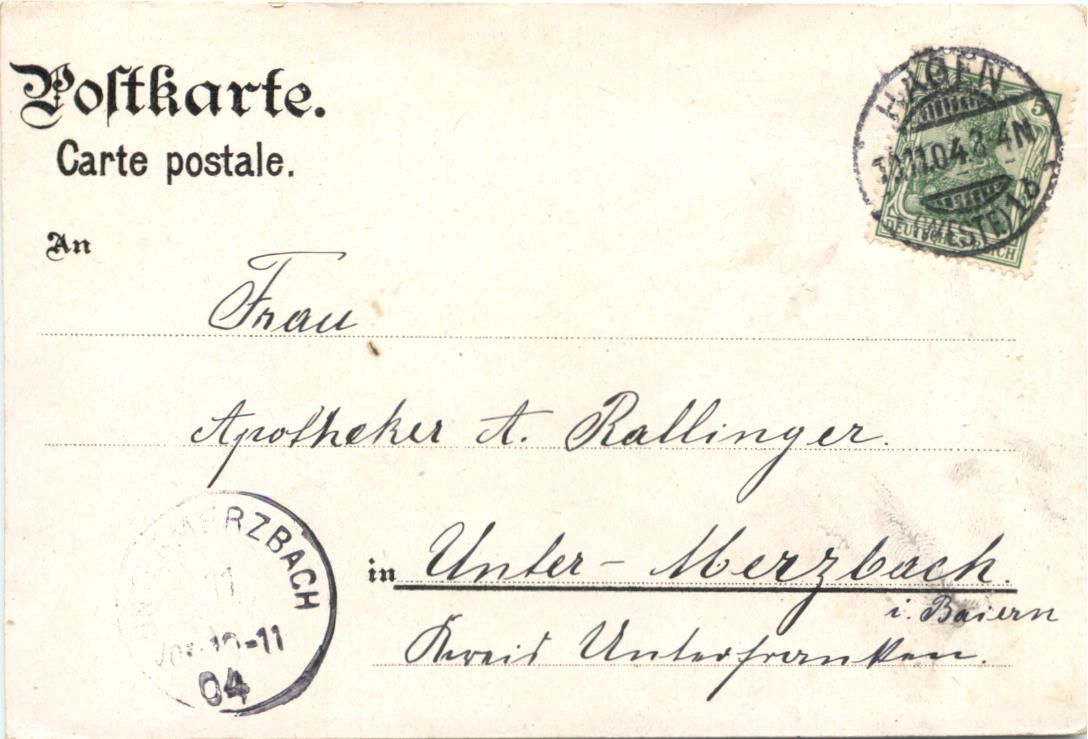 Postkarte.
Carte postale.
HAGEN
5
11.04.
(WESTF.) 1
DEUTSCHES REICH
An
Frau
Apotheker A. Rallinger.
in Unter-Merzbach.
i. Baiern
Kreis Unterfranken.
UNTERMERZBACH
11
10-11
04